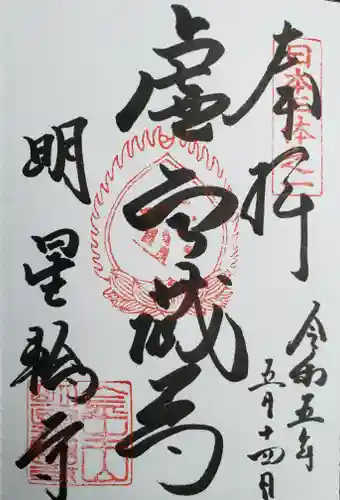 奉拝
日本三体之一
令和五年
五月十四日
虚空蔵尊
明星輪寺